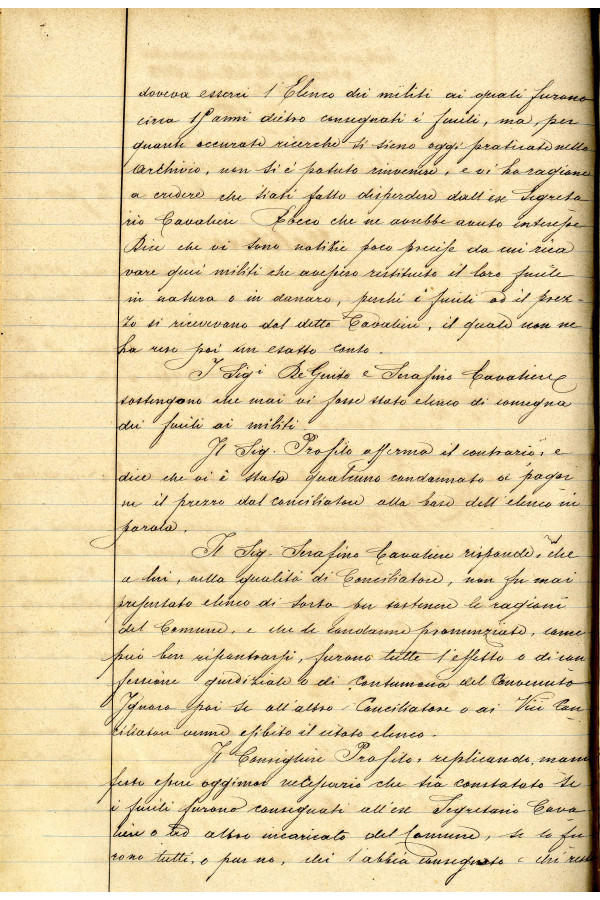 doveva esserci l'Elenco dei militi ai quali furono
circa 15 anni dietro consegnati i fucili, ma, per
quante accurate ricerche si sieno oggi praticate nello
Archivio, non si è potuto rinvenire, e vi ha ragione
a credere che siasi fatto disperdere dall'ex Segreta
rio Cavaliere Rocco che ne avrebbe avuto interesse
Dice che vi sono notizie poco precise da cui rica
vare quei militi che avessero restituito il loro fucile
in natura o in danaro, perchè i fucili ed il prez-
zo si ricevevano dal detto Cavaliere, il quale non ne
ha reso poi un esatto conto.
I Sigi De Guido e Serafino Cavaliere
sostengono che mai vi fosse stato elenco di consegna
dei fucili ai militi.
Il Sig. Profilo afferma il contrario, e
dice che vi è stato qualcuno condannato a pagar
ne il prezzo dal conciliatore alla base dell'elenco in
parola.
Il Sig. Serafino Cavaliere risponde, che
a lui, nella qualità di Conciliatore, non fu mai
presentato elenco di sorta per sostenere le ragioni
del Comune, e che le condanne pronunziate, come
può ben riscontrarsi, furono tutte l'effetto o di con
fessione giudiziale o di contumacia del convenuto
Ignora poi se all'altro Conciliatore o ai Vice Con
ciliatori venne esibito il citato elenco.
Il Consigliere Profilo, replicando, mani
festa essere oggimai necessario che sia constatato se
i fucili furono consegnati all'ex Segretario Cava
liere o ad altro incaricato del Comune, se lo fu
rono tutti, o pur no, chi l'abbia consegnato e chi